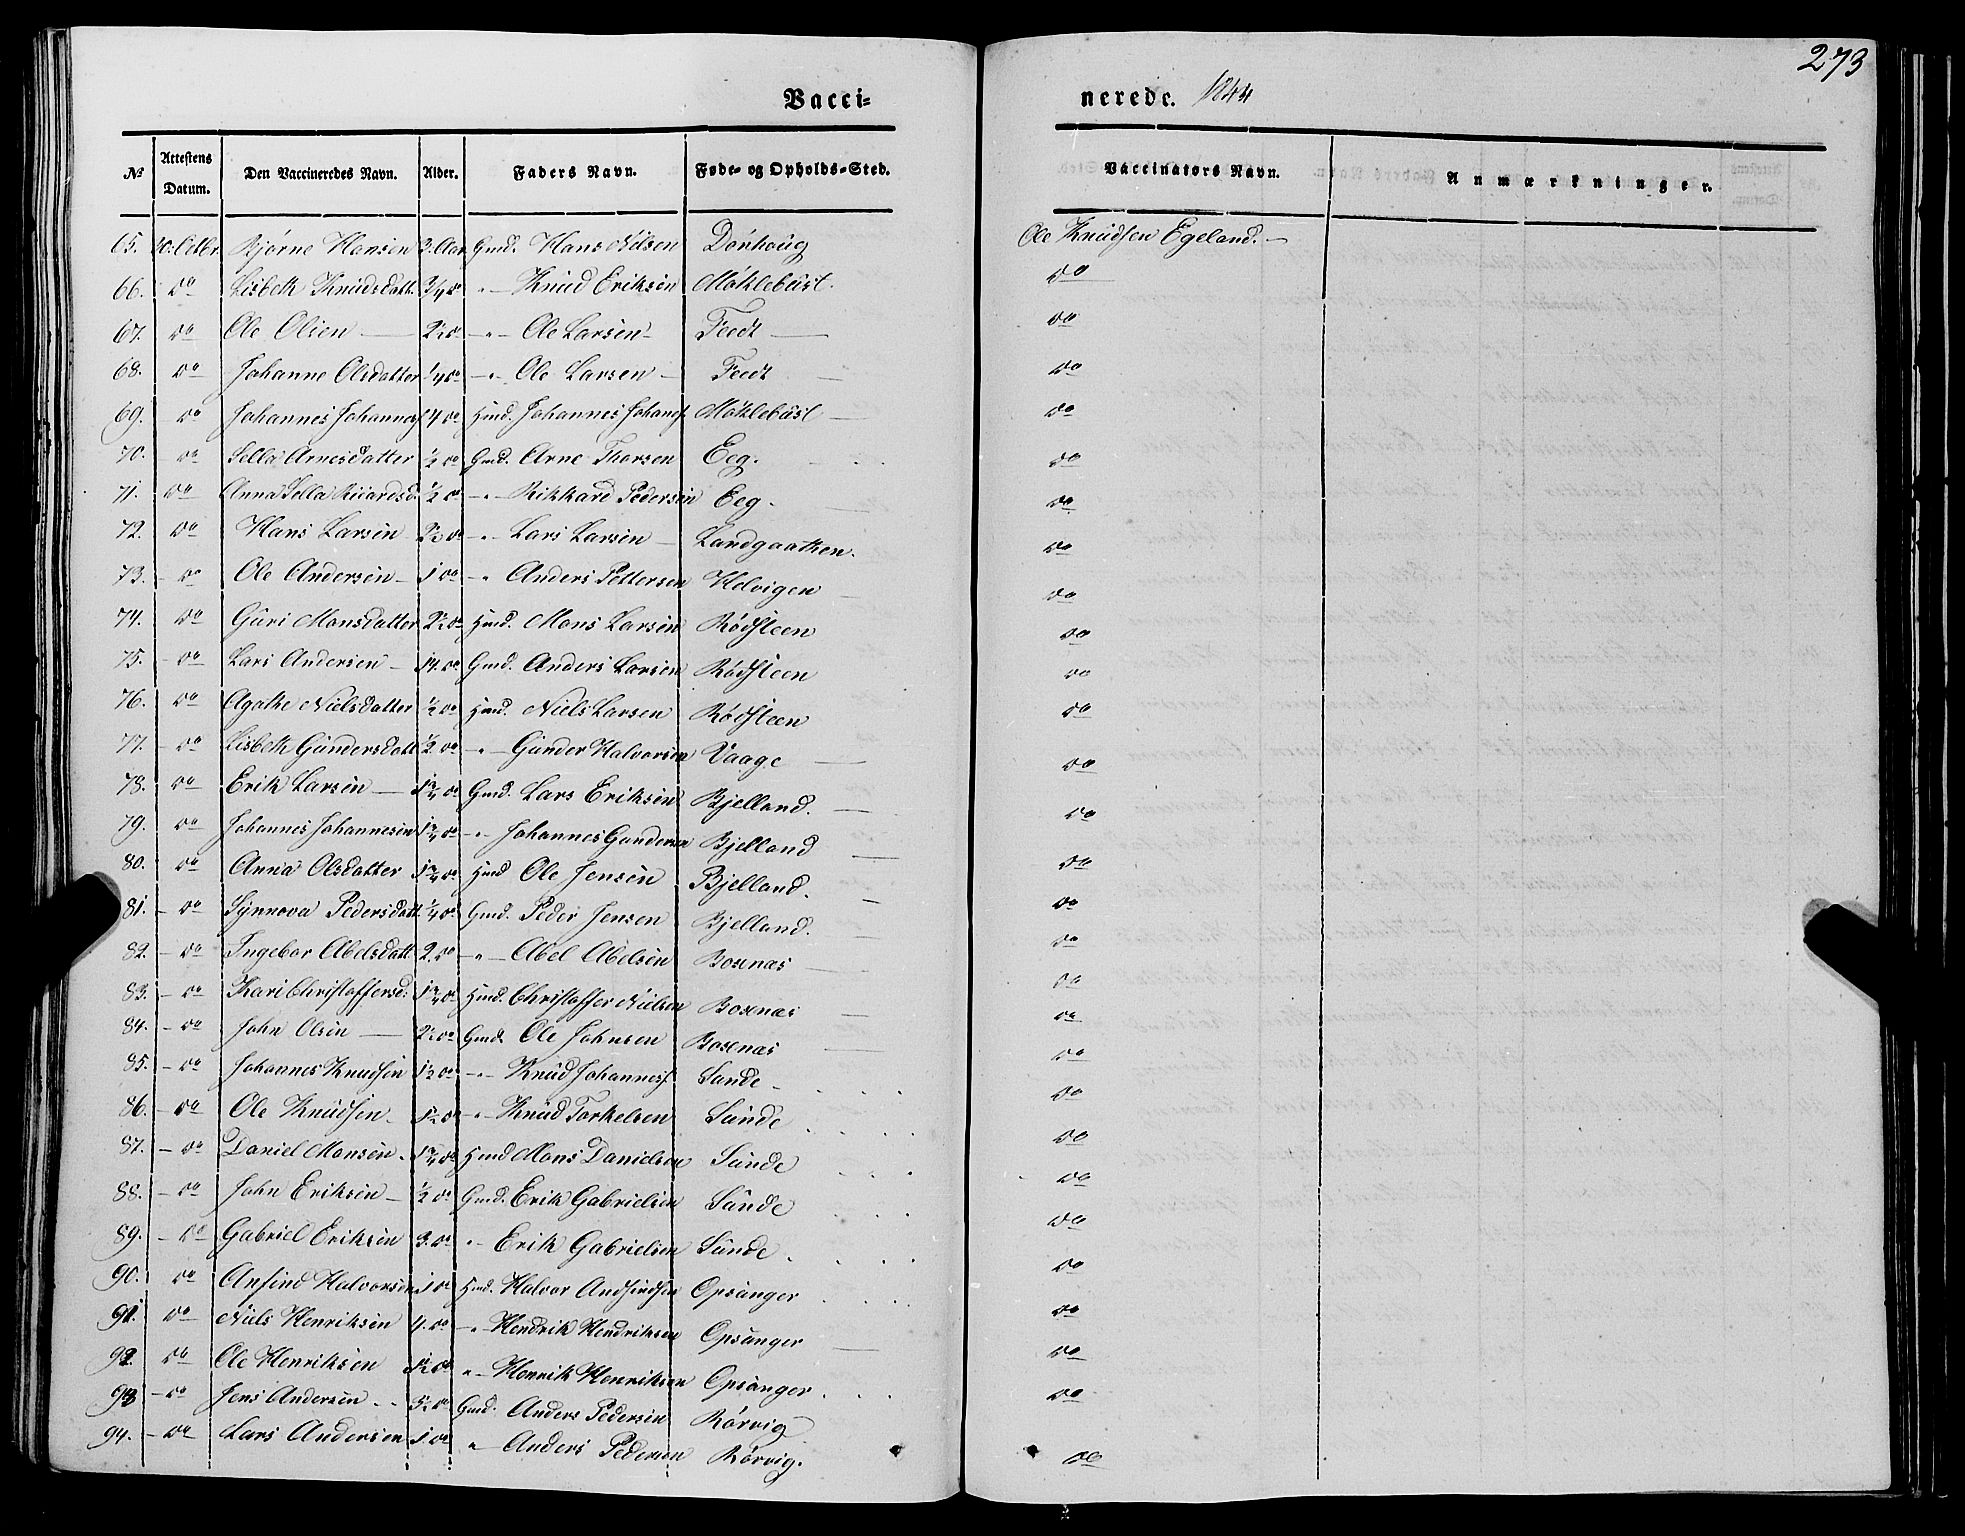 273
Vacci-
nerede. 1844
№ Attestens Datum. Den Vaccineredes Navn. Alder. Faders Navn. Føde- og Opholds-Sted. Vaccinators Navn. Anmærkninger.
65. Bjørne Hansen 3. Aar Gmd. Hans Nilsen Ole Knudsen Egeland.
66. do Lisbeth Knudsdatt. 3/4 do " Knud Eriksen Møklebust. do
67. do Ole Olsen 2½ do " Ole Larsen Feedt do
68. do Johanne Olsdatter ¼ do " Ole Larsen Feedt do
69. do Johannes Johannes 4 do Hmd. Johannes Johans Møklebust do
70. do Sella Arnesdatter ½ do Gmd. Arne Thorsen Eeg. do
71. do Anna Sella Ricardsd. ½ do " Rikkard Pedersen Eeg. do
72. do Hans Larsen 2½ do " Lars Larsen Landgaathen. do
73. do Ole Andersen 1 do " Anders Pettersen Helvigen do
74. do Guri Monsdatter 2½ do Hmd. Mons Larsen Rødsteen do
75. do Lars Andersen 14 do Gmd. Anders Larsen Rødsteen do
76. do Agathe Nielsdatter ½ do Hmd. Niels Larsen Rødsteen do
77. do Lisbeth Gundersdatt ½ do " Gunder Halvorsen Vaage do
78. do Erik Larsen 1¾ do Gmd. Lars Eriksen Bjelland. do
79. do Johannes Johannesen 1¾ do " Johannes Gundersen Bjelland do
80. do Anna Olsdatter 1¾ do Hmd Ole Jensen Bjelland. do
81. do Synnova Pedersdatt. ¼ do Gmd. Peder Jensen Bjelland. do
82. do Ingebor Abelsdatt 2. do " Abel Abelsen Bosenæs do
83. do Kari Christoffersd: 1¾ do Hmd. Christoffer Nielsen Bosenæs do
84. do John Olsen 2½ do Gmd. Ole Johnsen Bosenæs do
85. do Johannes Knudsen 1½ do " Knud Johannes. Sunde do
86. do Ole Knudsen 1½ do " Knud Torkelsen Sunde do
87. do Daniel Monsen 1¾ do Hmd Mons Danielsen Sunde do
88. do John Eriksen ½ do Gmd. Erik Gabrielsen Sunde do
89. do Gabriel Eriksen 3. do " Erik Gabrielsen Sunde do
90. do Anfind Halvorsen 1 do Hmd. Halvor Andfindsen Opsanger do
91. do Niels Henriksen 4. do " Hendrik Hendriksen Opsanger do
92. do Ole Henriksen 1½ do " Henrik Henriksen Opsanger do
93 do Jens Andersen 5½ do Gmd. Anders Pedersen Rørvig do
94. do Lars Andersen 1 do " Anders Pedersen Rørvig. do